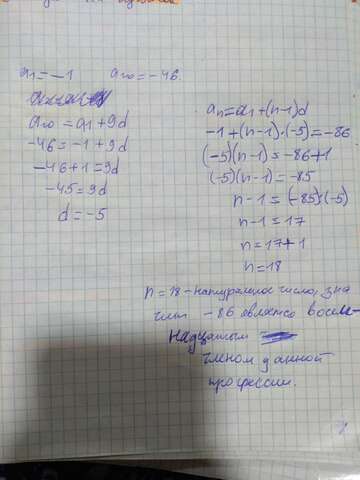 a₁=-1 a₁₀=-46
a₁₀=a₁+9d
-46=-1+9d
-46+1=9d
-45=9d
d=-5
aₙ=a₁+(n-1)d
-1+(n-1)·(-5)=-86
(-5)(n-1)=-86+1
(-5)(n-1)=-85
n-1=(-85):(-5)
n-1=17
n=17+1
n=18
n=18-натуральное число, зна
чит -86 является восем-
надцатым
членом данной
прогрессии.